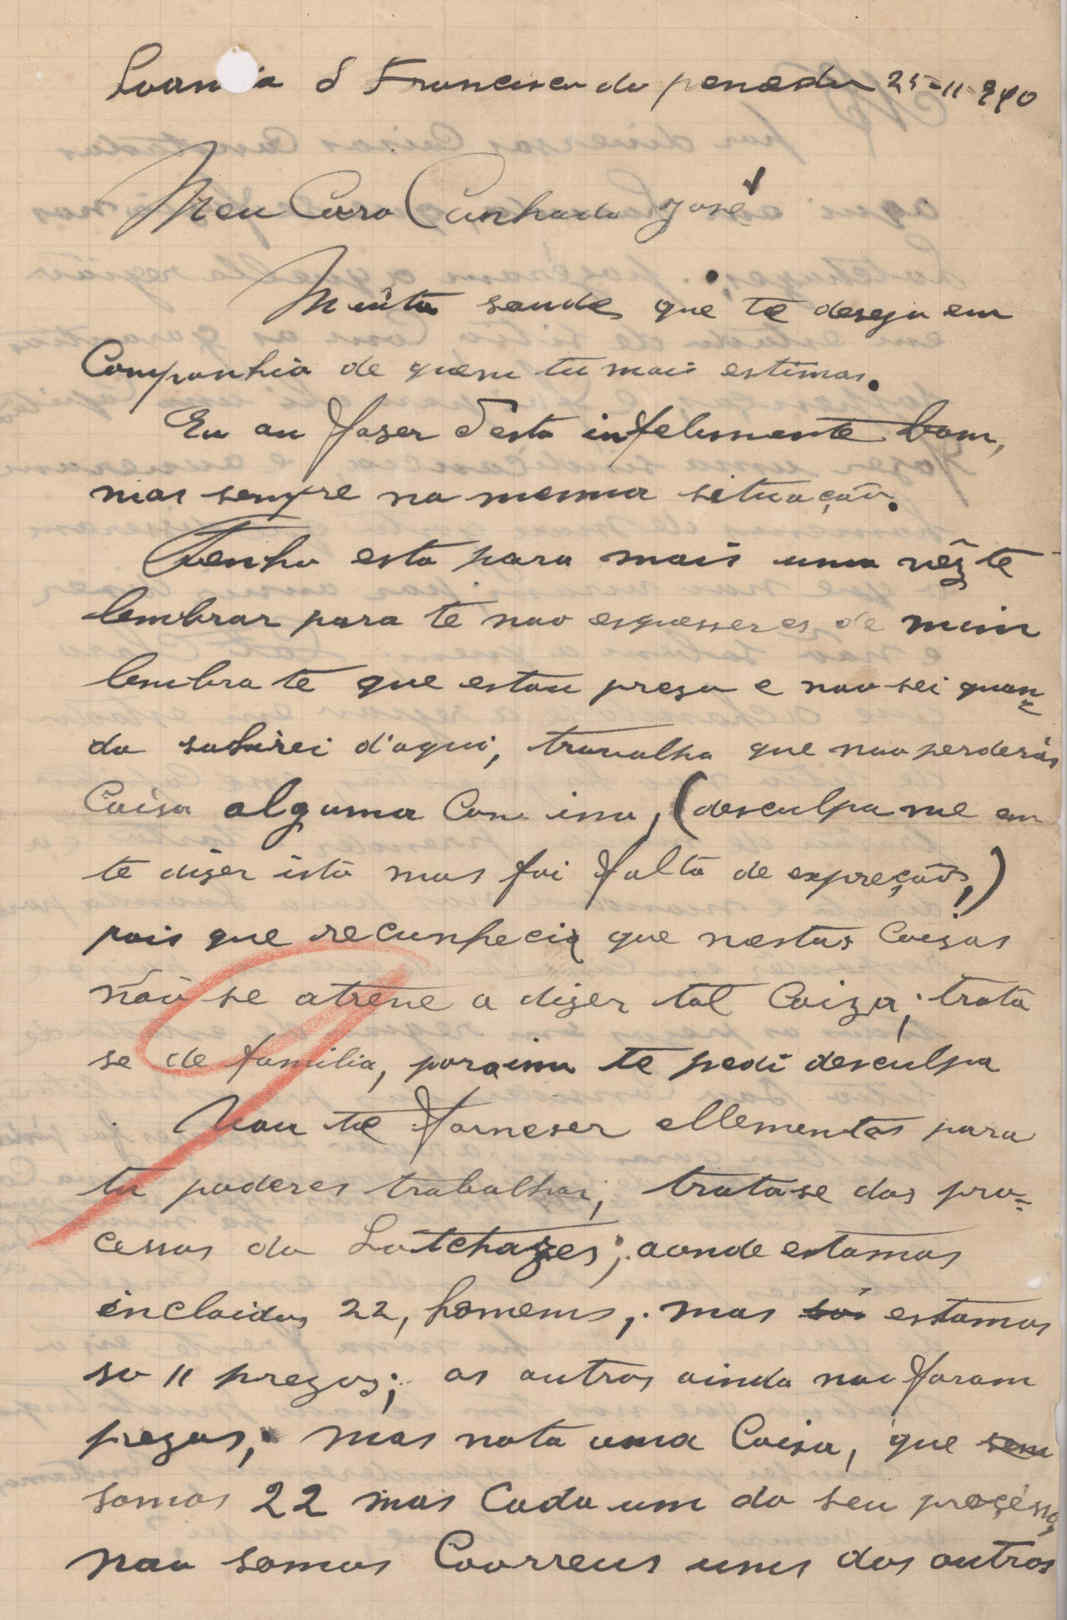 Loanda S Francisco do penedo 25-11-940
Meu Caro Cunhado José
Muita saude que te desejo em
Companhia de quem tu mais estimas.
Eu au fazer desta infelismente bom,
mas sempre na mesma situação.
Tenho esta para mais uma vêz te
lembrar para te nao esquesseres de mim
lembra te que estou prezo e nao sei quan=
do sahirei d'aqui, travalha que nao perderás
Coisa alguma Com isso, (desculpa me em
te dizer isto mas foi falta de expreção,)
pois que recunheciq que nestas Coisas
não se atreve a dizer tal Coiza; trata
se de familia, por isso te pedi desculpa
Vou te forneser ellementos para
tu poderes trabalhar, trata-se dos pro=
cessos do Lutchazes; aonde estamos
incloidos 22, homems, mas só estamos
so 11 prezos; os outros ainda nao foram
prezos; mas nota uma Coisa, que sem
somos 22 mas Cada um do seu procésso,
nao somos Coorreus uns dos outros